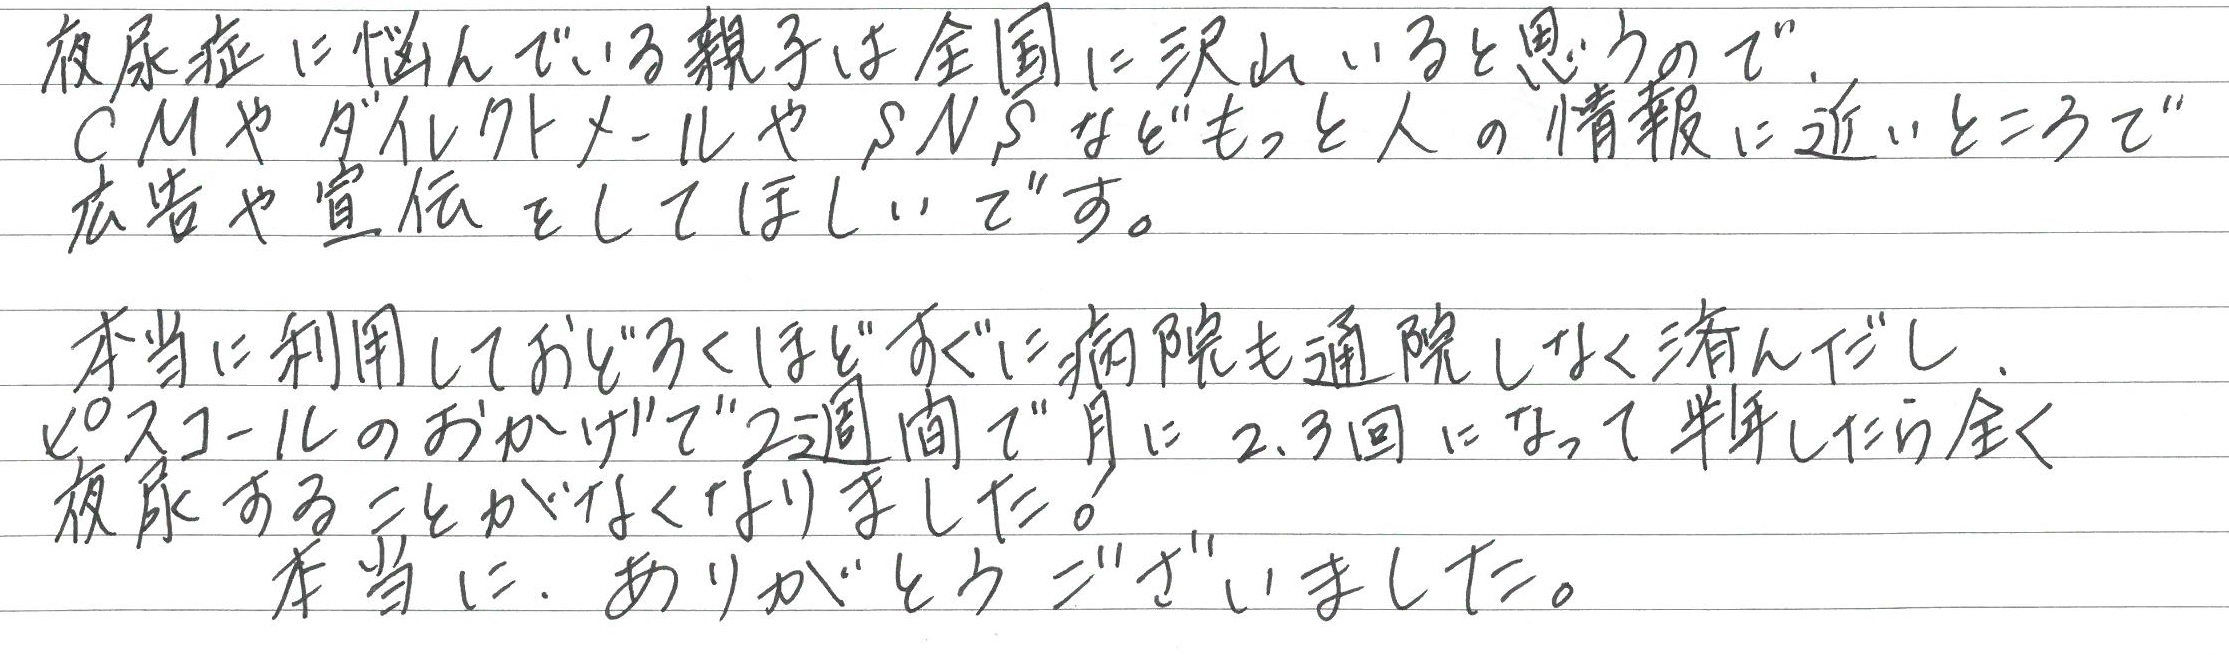 夜尿症に悩んでいる親子は全国に沢山いると思うので、
CMやダイレクトメールやSNSなどもっと人の情報に近いところで
広告や宣伝をしてほしいです。
本当に利用しておどろくほどすぐに病院も通院しなく済んだし、
ピスコールのおかげで2週間で月に2、3回になって半年したら全く
夜尿することがなくなりました!
本当に、ありがとうございました。